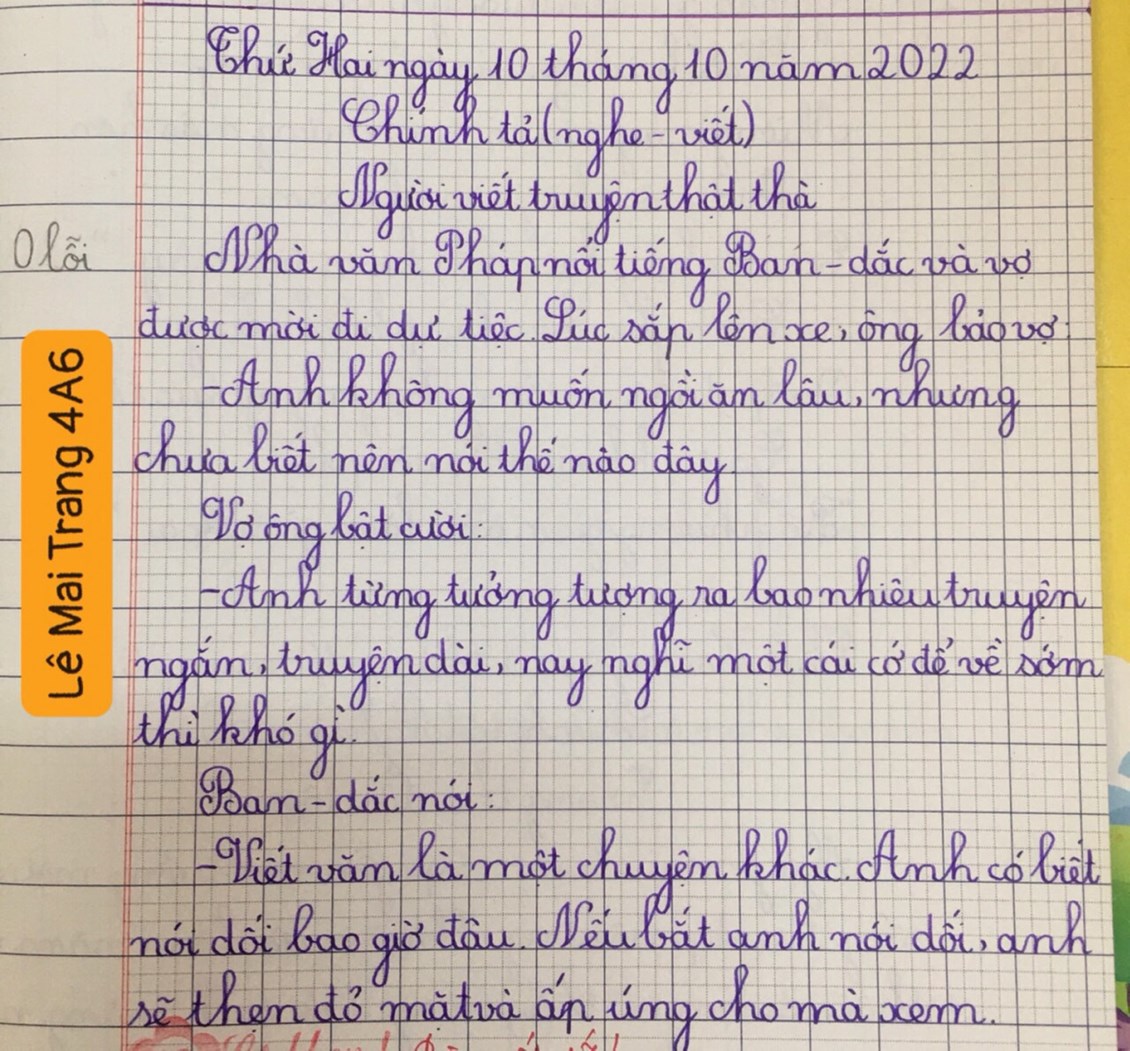 Thứ Hai ngày 10 tháng 10 năm 2022
Chính tả (nghe - viết)
Người viết truyện thật thà
0 lỗi
Nhà văn Pháp nổi tiếng Ban-dắc và vợ
được mời đi dự tiệc. Lúc sắp lên xe, ông bảo vợ:
- Anh không muốn ngồi ăn lâu, nhưng
chưa biết nên nói thế nào đây.
Vợ ông bật cười:
- Anh từng tưởng tượng ra bao nhiêu truyện
ngắn, truyện dài, nay nghĩ một cái cớ để về sớm
thì khó gì.
Ban-dắc nói:
- Viết văn là một chuyện khác. Anh có biết
nói dối bao giờ đâu. Nếu bắt anh nói dối, anh
sẽ thẹn đỏ mặt và ấp úng cho mà xem.
Lê Mai Trang 4A6